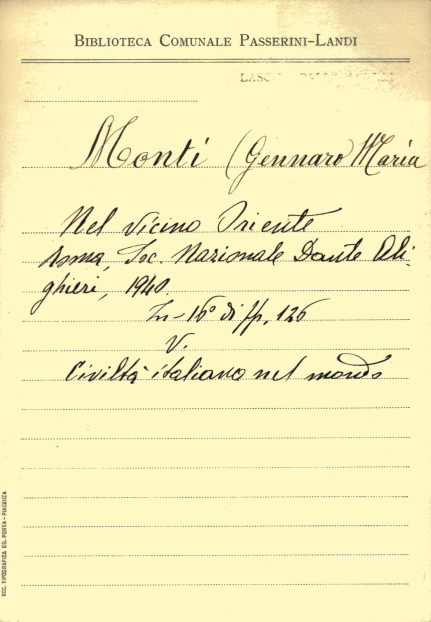 BIBLIOTECA COMUNALE PASSERINI-LANDI
Monti (Gennaro Maria
Nel vicino Oriente
Roma, Soc. Nazionale Dante Ali-
ghieri, 1940.
In-16° di pp. 126
V.
Civiltà italiana nel mondo
SOC. TIPOGRAFICA ED. PORTA - PIACENZA